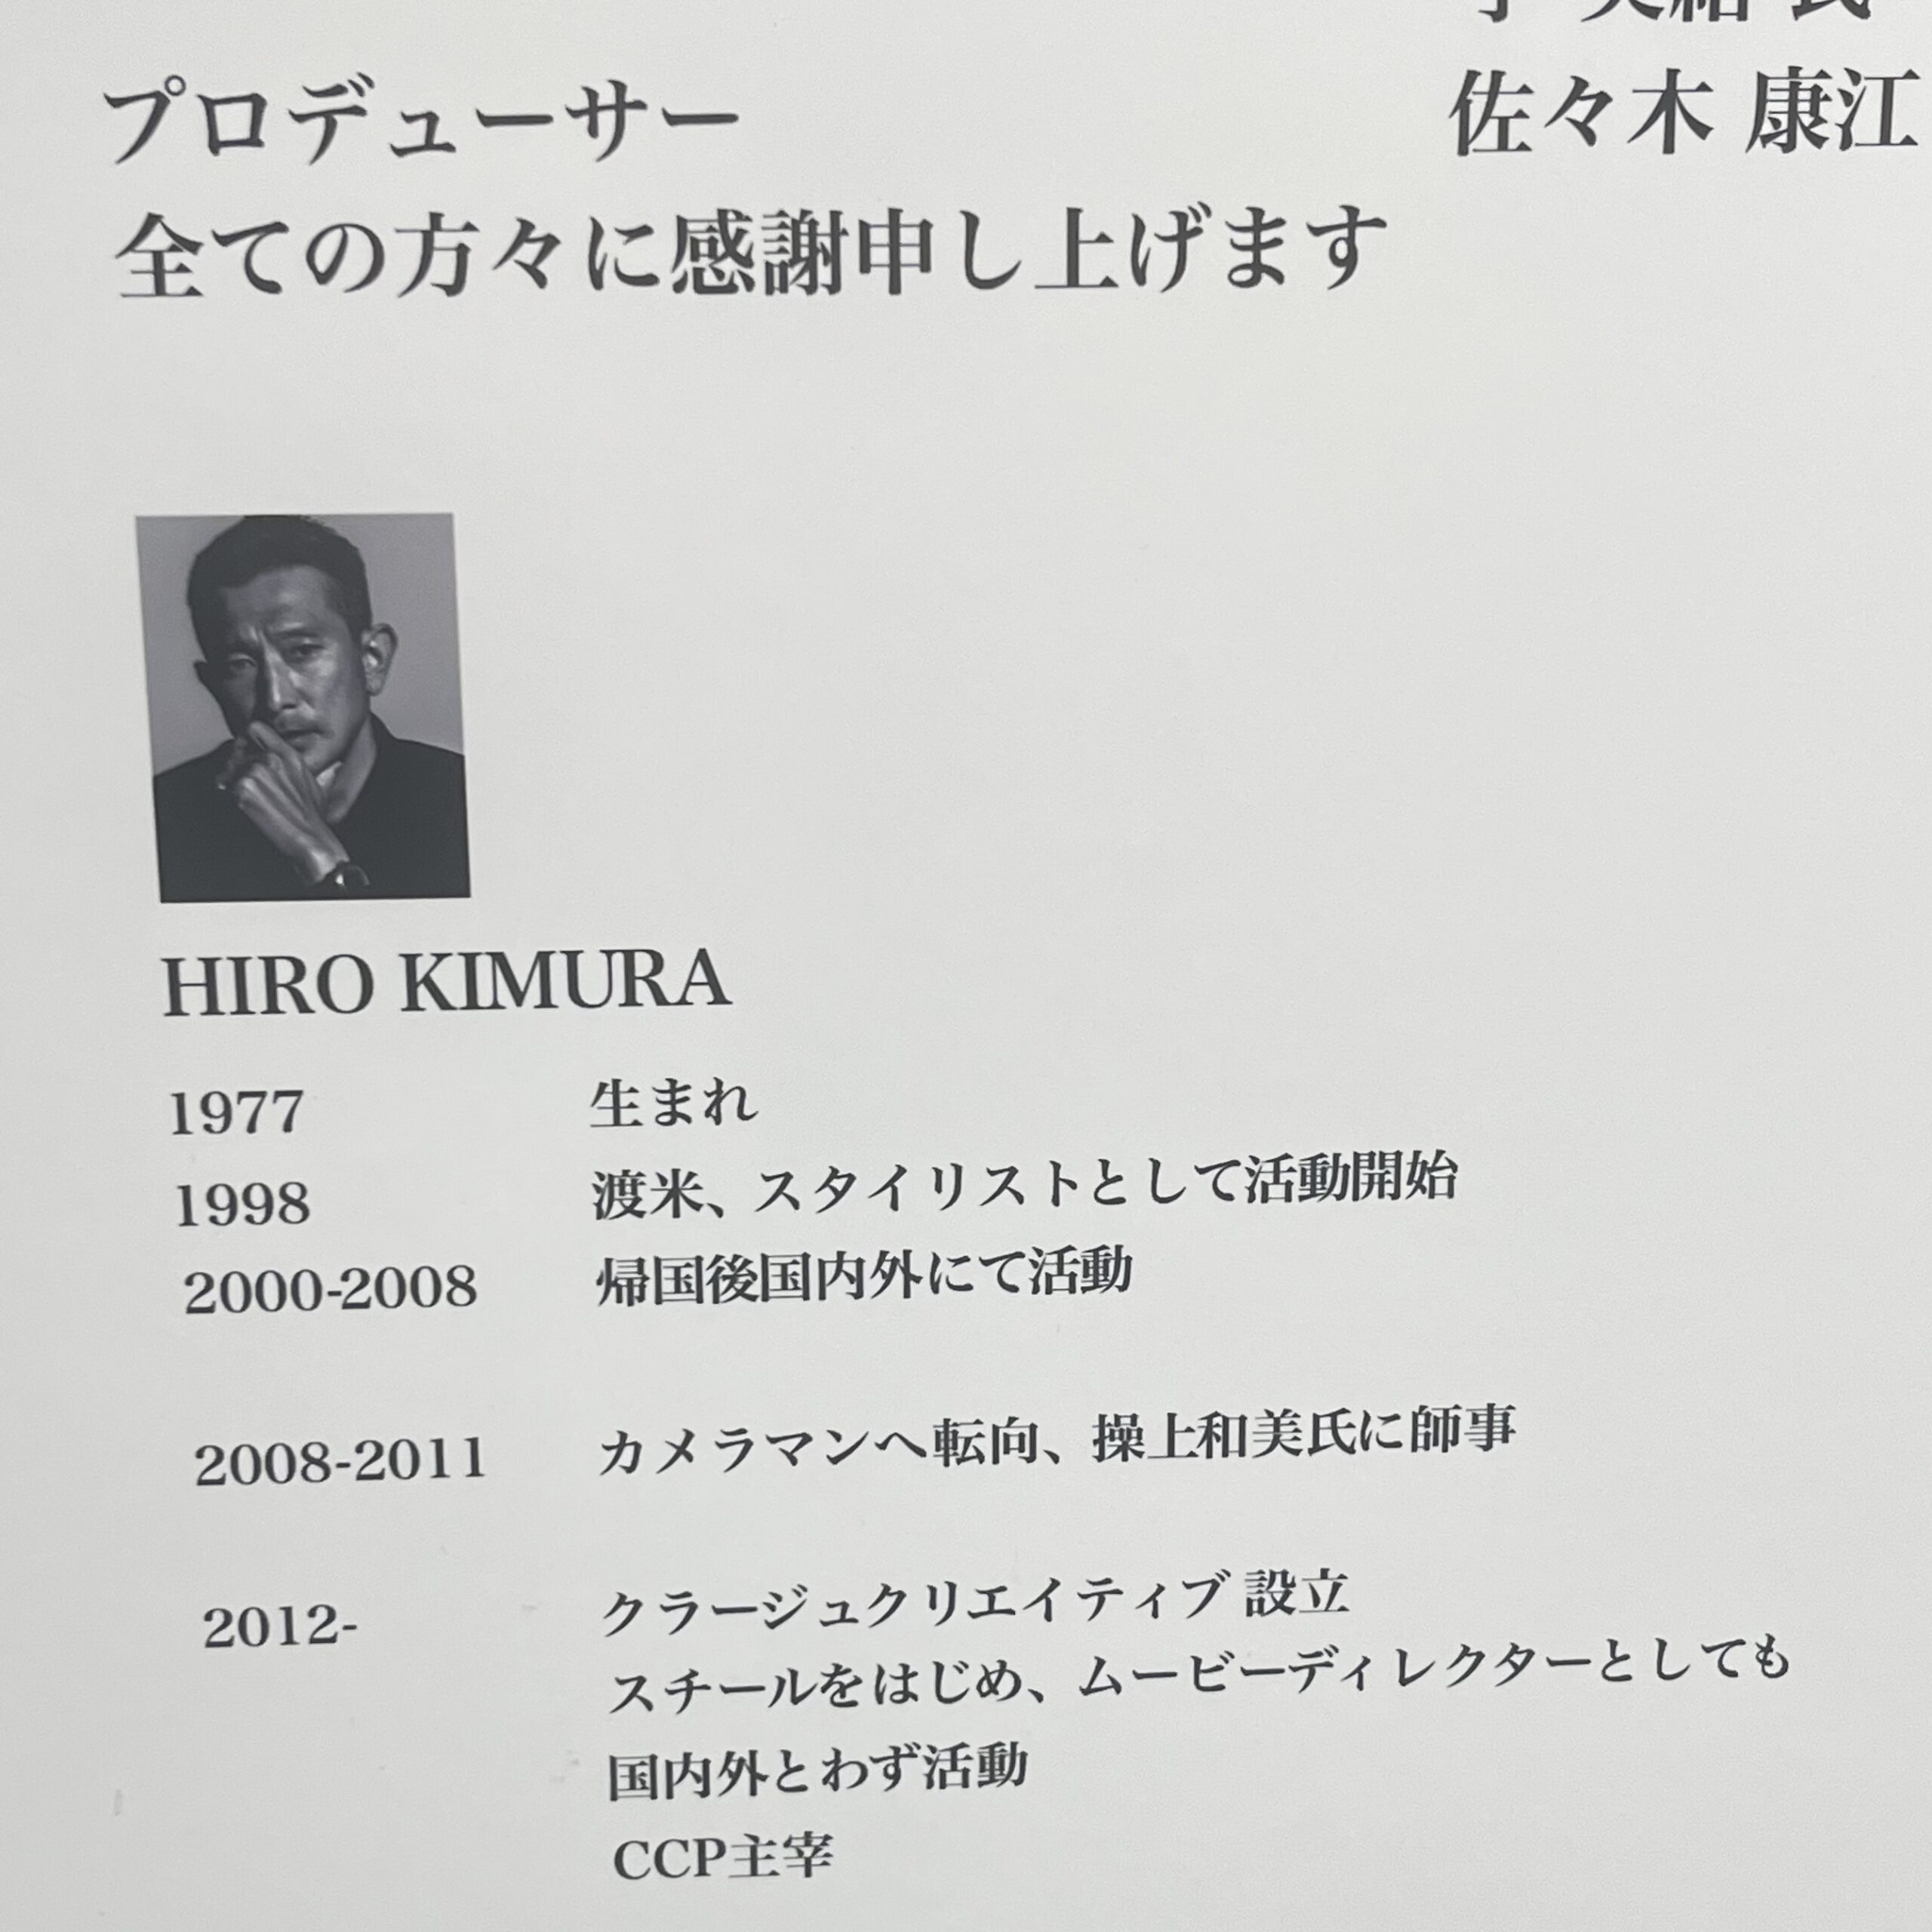 プロデューサー
佐々木 康江
全ての方々に感謝申し上げます
HIRO KIMURA
1977 生まれ
1998 渡米、スタイリストとして活動開始
2000-2008 帰国後国内外にて活動
2008-2011 カメラマンへ転向、操上和美氏に師事
2012- クラージュクリエイティブ 設立
スチールをはじめ、ムービーディレクターとしても
国内外とわず活動
CCP主宰